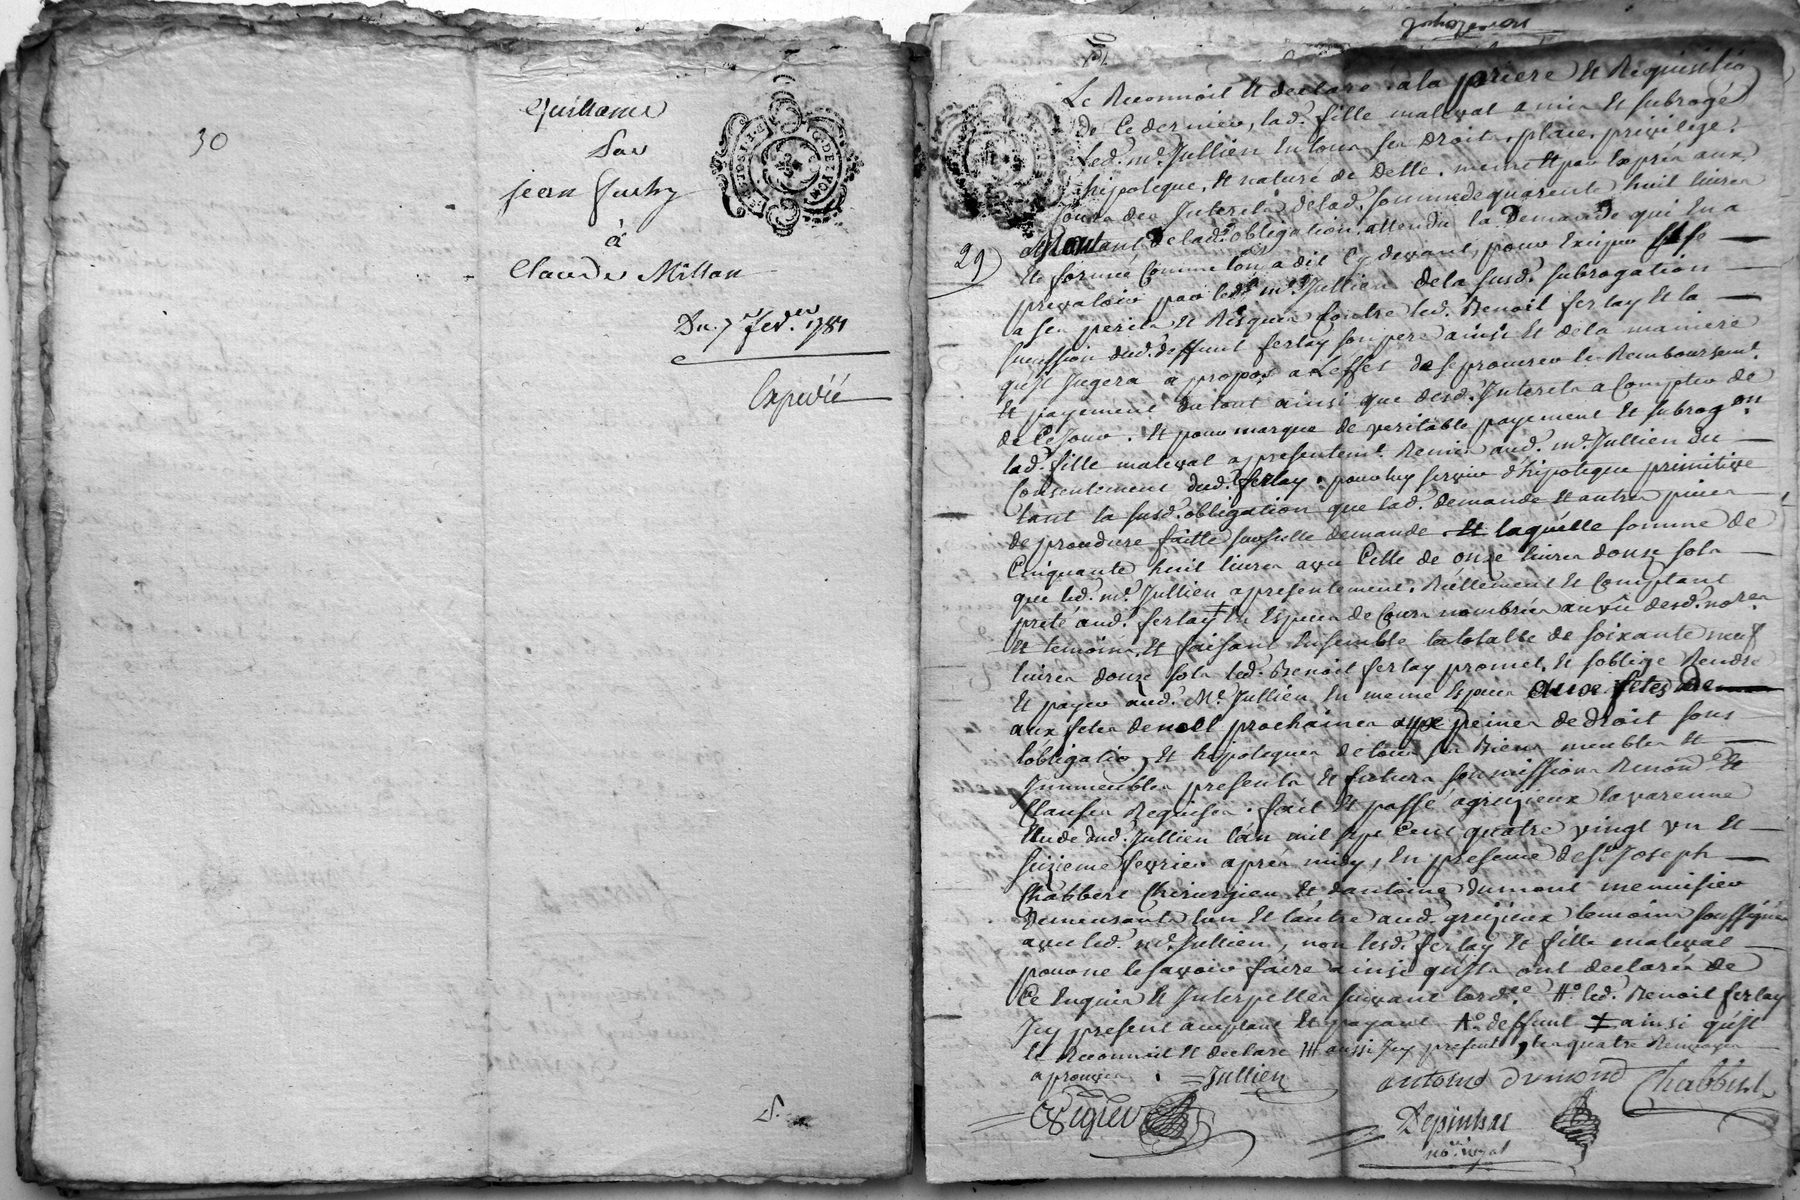 30
Quittance
Par
jean
à
Claude Millon
Du 7 fev.er 1781
Expediée
29
Le Reconnoit et declare a la priere et Requisition
de ce dernier, lad. fille malaval a mis et subrogé
led. me. Jullien en tous ses droits, place, privilege,
hipoteque, et nature de dette, même et par exprés aux
des Interets de lad. somme de quarente huit livres
Montant de lad. obligation, attendu la Demande qui en a
été formée comme l'on a dit cy devant, pour
prevaloir par led. me. Jullien de la susd. subrogation
a ses perils et Risques contre led. Benoit ferlay et la
sucession dud. deffunt ferlay son pere ainsi et de la maniere
qu'il Jugera a propos a L'effet de se procurer le Remboursemt.
et payement du tout ainsi que desd. Interets a Compter de
de Ce Jour. et pour marque de veritable payement et subrogon
lad. fille malaval a presentemt. Remis aud. me. Jullien du
Consentement dud. ferlay, pour luy servir d'hipoteque primitive
tant la susd. obligation que lad. demande et autres pieces
de procedure faitte sur icelle demande. Et laquelle somme de
Cinquante huit livres avec Celle de onze livres douze sols
que led. me. Jullien a presentement Réellement et Comptant
preté aud. ferlay ‡ en Espèces de Cours nombrées au vû desd. nores
et temoins, et faisant Ensemble la totalle de soixante neuf
livres douze sols led. Benoit ferlay promet, et s'oblige Rendre
et payer aud. Me. Jullien, en même Espèces aux fetes de
aux fetes de noel prochaines aux peines de droit sous
l'obligation, et hipoteques de tous ses Biens meubles et
Jmmeubles presents et futurs soumissions Renonons et
Clauses Requises. fait et passé a grezieux la varenne
Etude dud. Jullien l'an mil sept Cent quatre vingt un et
seizieme fevrier aprés midy, en presence de sr. Joseph
Chabbert Chirurgien et d'antoine dumont menuisier
demeurants l'un et l'autre aud. grezieux temoins soussignés
avec led. me. Jullien, non lesd. ferlay et fille malaval
pour ne le savoir faire ainsi qu'ils ont declarés de
Ce Enquis et Interpellés suivant l'ordce. #o led. Benoit ferlay
Jcy present acceptant et payant #o deffunt ‡ ainsi qu'il
le Reconnoit et declare ### aussi Jcy present, les quatre Renvoys
aprouvés. Jullien antoine dumond Chabbert
Depinhac
nore. royal